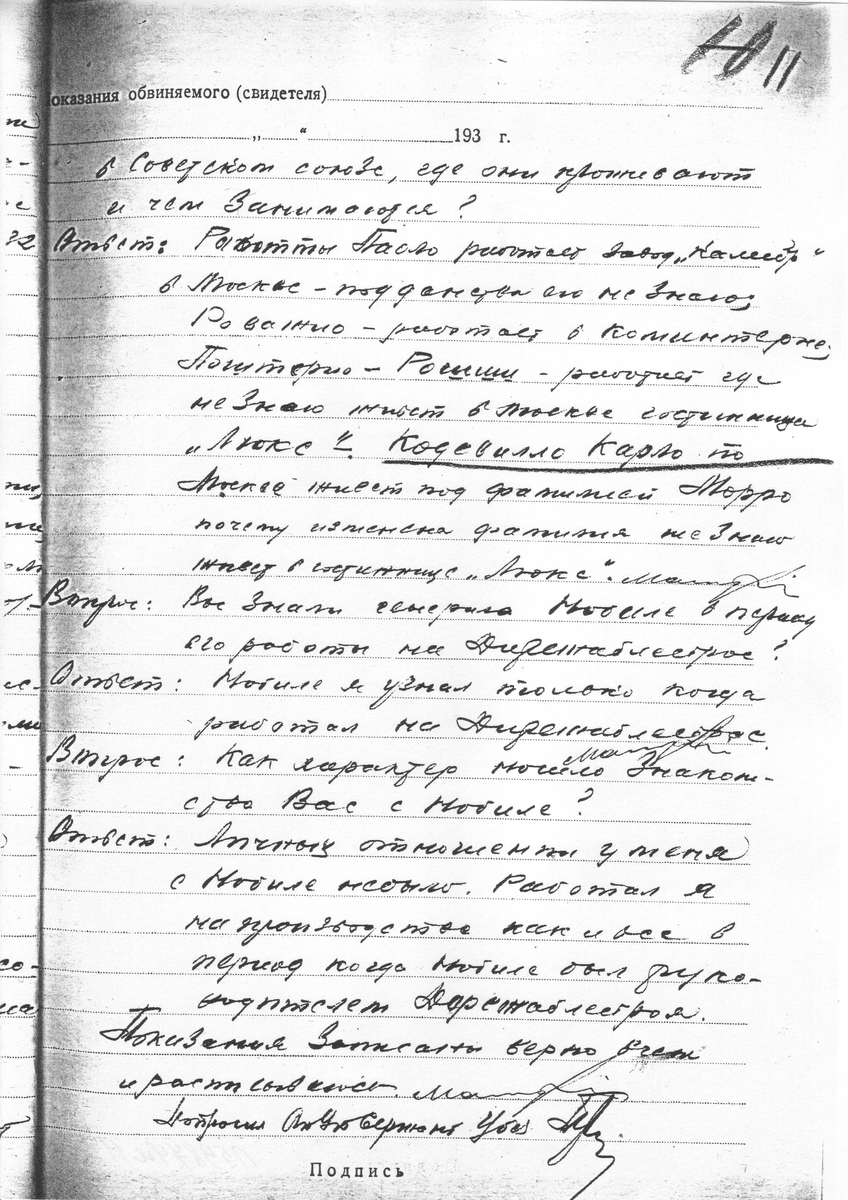 11
оказания обвиняемого (свидетеля)
„ “ 193 г.
в Советском союзе, где они проживают
и чем занимаются?
Ответ: Работти Паоло работает завод „Калибр“
в Москве – подданства его не знаю;
Роважио – работает в коминтерне;
Поштерио – Росиши – работает где
не знаю живет в Москве гостинница
„Люкс“. Кодевилло Карло по
Москве живет под фамилией Морро
почему изменена фамилия не знаю
живет в гостиннице „Люкс“.
Вопрос: Вы знали генерала Нобиле в период
его работы на Дирежаблестрое?
Ответ: Нобиле я узнал только когда
работал на Дирежаблестрое.
Вопрос: Как характер носило знаком-
ство Вас с Нобиле?
Ответ: Личных отношении у меня
с Нобиле небыло. Работал я
на производстве как и все в
период когда Нобиле был руко-
водителем Дорежаблестроя.
Показания записаны верно в чем
и расписываюсь.
Допросил
Подпись